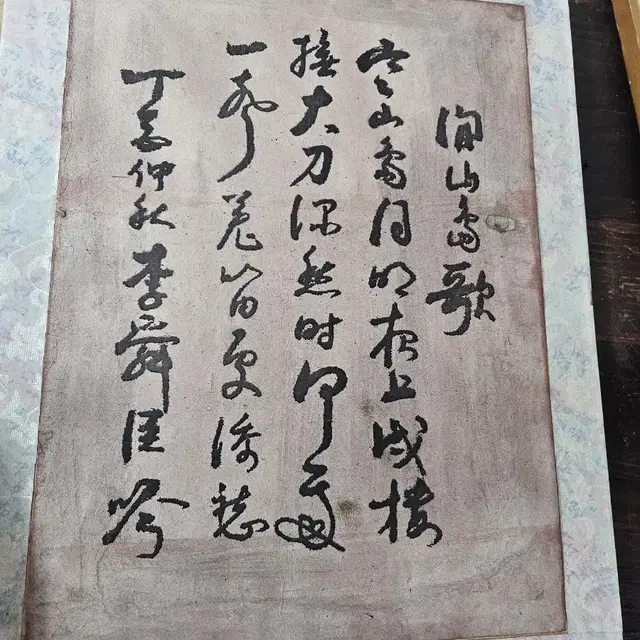 閒山島歌
寒山島月明夜上戍樓
撫大刀深愁時何處
一聲羌笛更添愁
丁酉仲秋 李舜臣吟